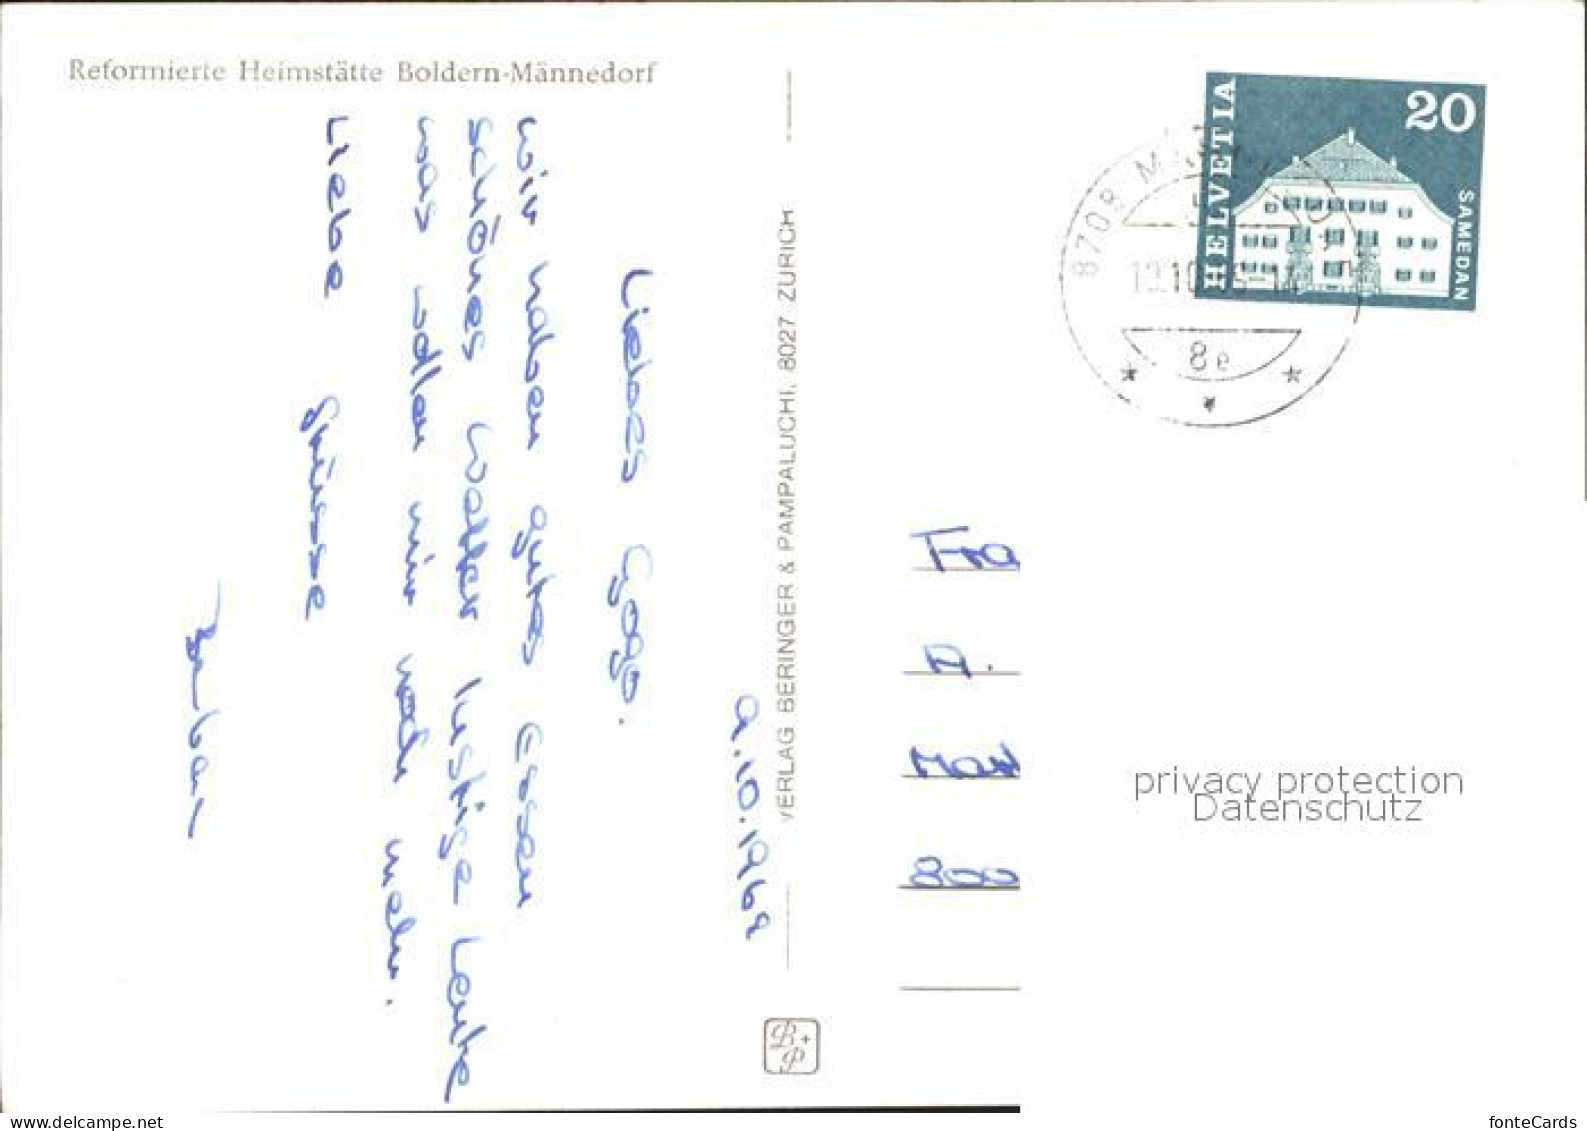 Reformierte Heimstätte Boldern-Männedorf
9.10.1969
Liebes Gogo.
wir haben gutes Essen
schönes Wetter lustige Leute
was wollen wir noch mehr.
Liebe Grüsse
VERLAG BERINGER & PAMPALUCHI, 8027 ZÜRICH
B+P
HELVETIA
20
SAMEDAN
8708
8e
Fra
A.
800
privacy protection
Datenschutz
www.delcampe.net
fonteCards